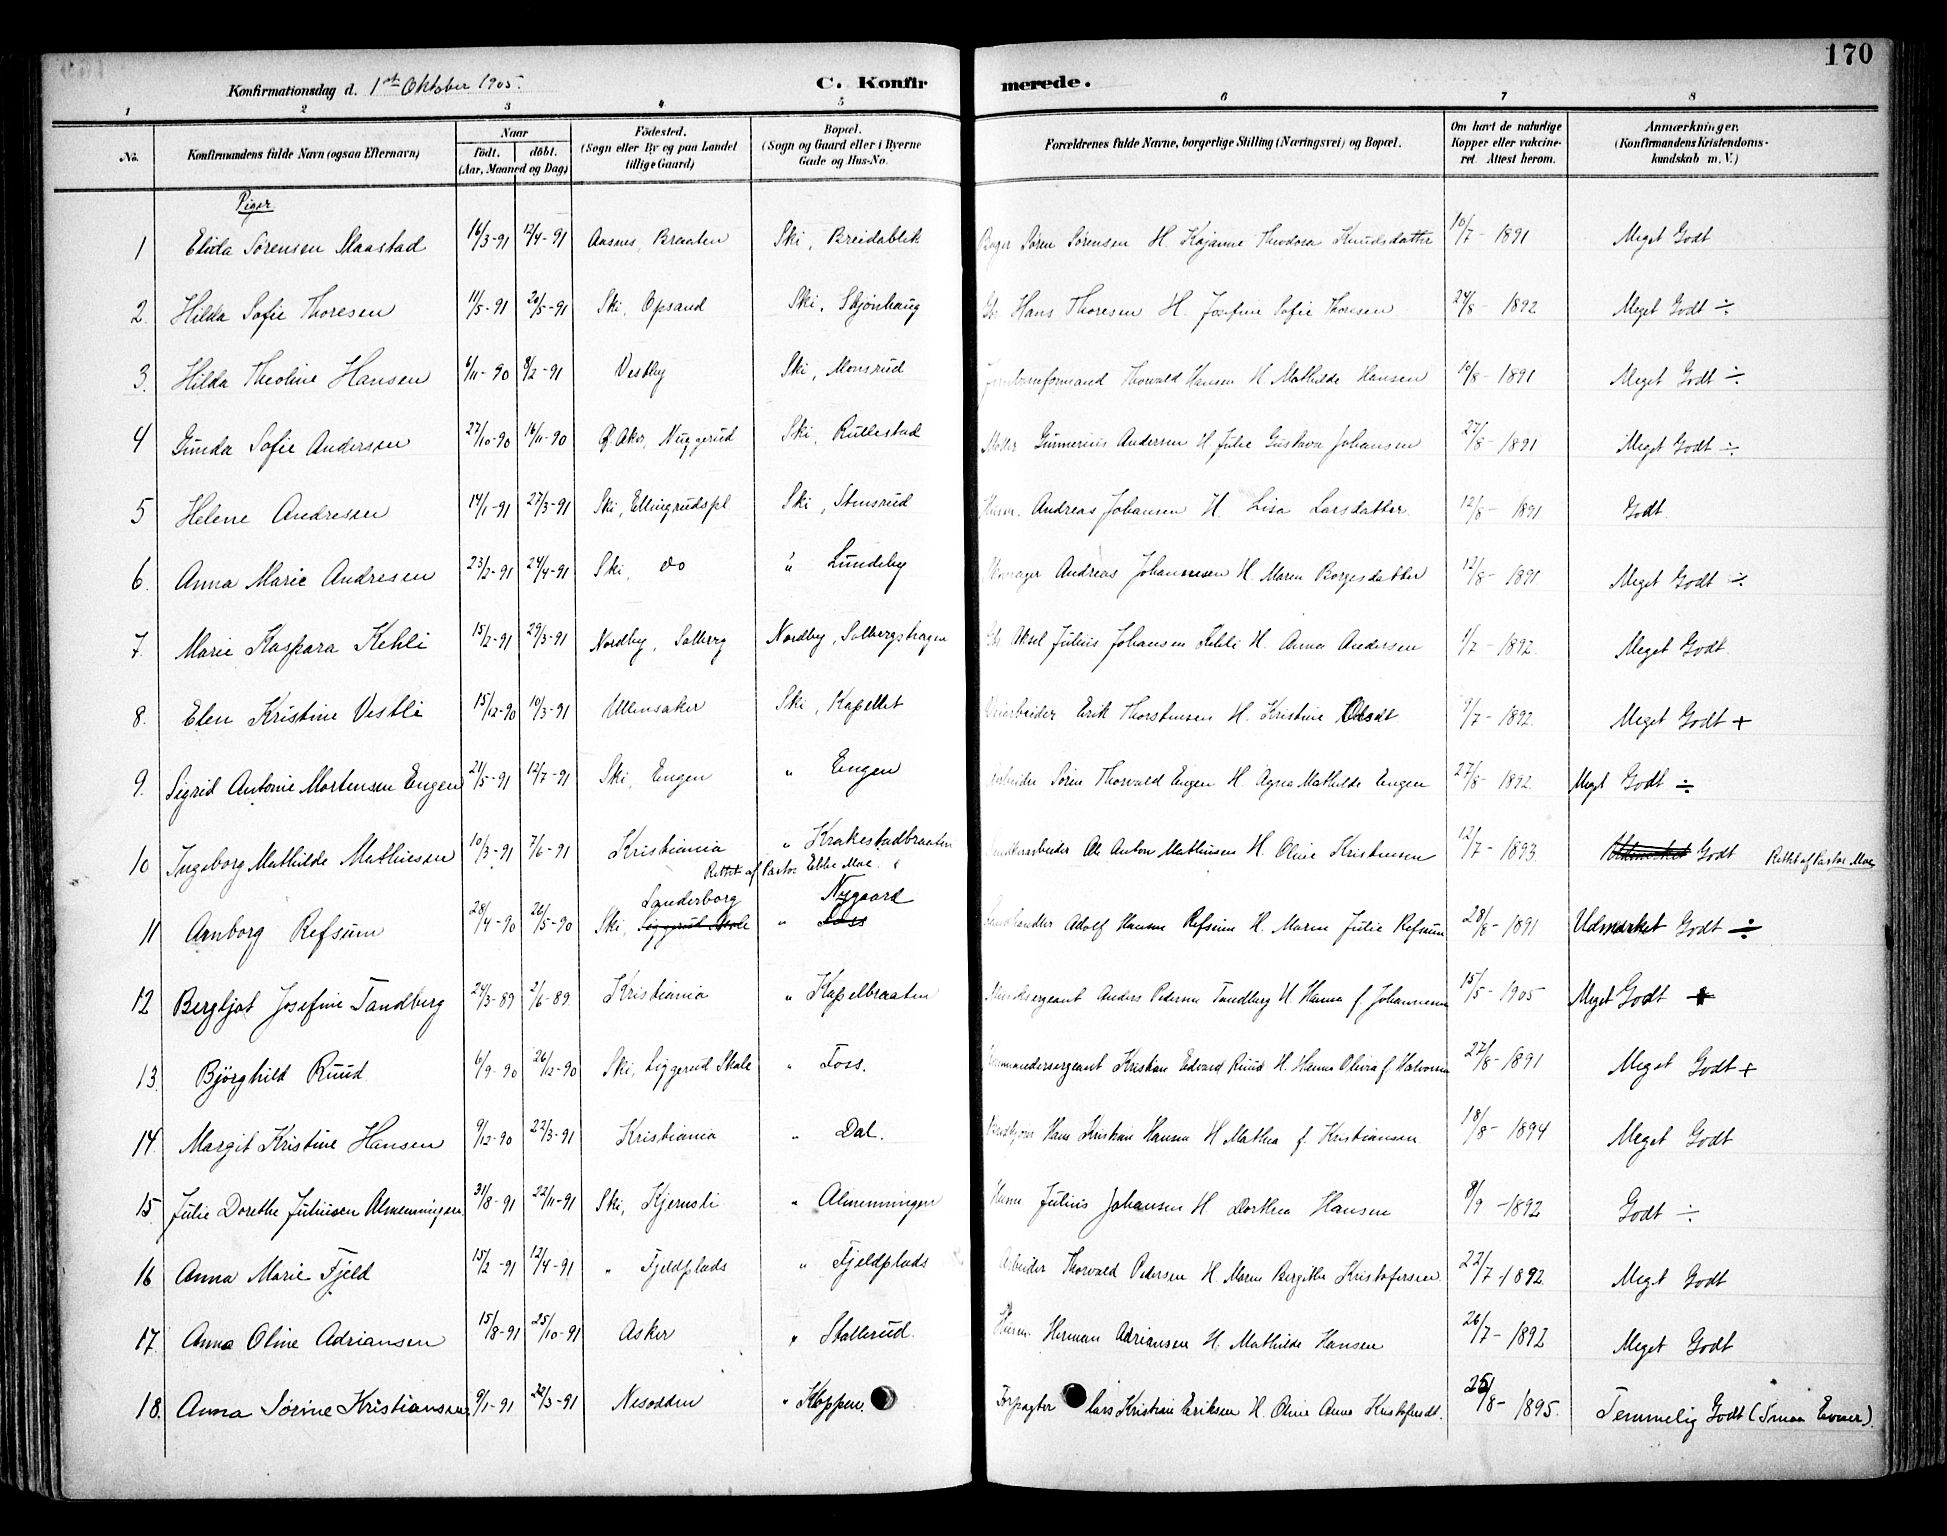 170
Konfirmationsdag d. 1ste Oktober 1905.
C. Konfir
merede.
1 2 3 4 5 6 7 8
No. Konfirmandens fulde Navn (ogsaa Efternavn) Naar født. døbt. (Aar, Maaned og Dag) Fødested. (Sogn eller By og paa Landet tillige Gaard) Bopæl. (Sogn og Gaard eller i Byerne Gade og Hus-No. Forældrenes fulde Navne, borgerlige Stilling (Næringsvei) og Bopæl. Om havt de naturlige Kopper eller vakcineret. Attest herom. Anmærkninger. (Konfirmandens Kristendomskundskab m. V.)
Piger
1 Elida Sørensen Skaastad 16/3-91 12/4-91 Aasnes, Braaten Ski, Breidablik Søren Sørensen H. Kajanne Theodora Knudsdatter 10/7-1891 Meget Godt
2. Hilda Sofie Thoresen 11/5-91 20/5-91 Ski, Opsand Ski, Skjønhaug Hans Thoresen H. Josefine Sofie Thoresen 24/8-1892 Meget Godt ÷
3. Hilda Theoline Hansen 6/11-90 8/2-91 Vestby Ski, Monsrud Jernbaneformand Thorvald Hansen H. Mathilde Hansen 10/8-1891 Meget Godt ÷
4 Gunda Sofie Andersen 27/10-90 16/11-90 Ø Aker, Nuggerud Ski, Rullestad Møller Gunnerius Andersen H Julie Gustava Johansen 27/8-1891 Meget Godt ÷
5 Helene Andresen 14/1-91 27/3-91 Ski, Ellingrudspl Ski, Stensrud Husm. Andreas Johansen H. Lisa Larsdatter 12/8-1891 Godt
6. Anna Marie Andresen 23/2-91 24/4-91 Ski, do " Lundeby Andreas Johannesen H. Maren Borgesdatter 12/8-1891 Meget Godt ÷
7. Marie Kaspara Kehli 15/2-91 29/3-91 Nordby, Solberg Nordby, Solbergshagen Aksel Julius Johansen Kehli H. Anna Andersen 1/7-1892. Meget Godt.
8. Elen Kristine Vestli 15/12-90 10/3-91 Ullensaker Ski, Kapellet Erik Thorstensen H. Kristine Olsdt 9/7-1892 Meget Godt +
9. Sigrid Antonie Mortensen Engen 21/5-91 12/7-91 Ski, Engen " Engen Arbeider Søren Thorvald Engen H. Agna Mathilde Engen 27/8-1892. Meget Godt ÷
10 Ingeborg Mathilde Mathiesen 10/3-91 7/6-91 Kristiania " Krakestadbraaten Ole Anton Mathiesen H. Oline Kristensen 12/7-1893. Udmærket Godt Rettet af Pastor Moe
Rettet af Pastor Ebbe Moe.
11 Arnborg Refsum 28/4-90 26/5-90 Ski, Siggerud Skole Sanderborg " Foss Nygaard Adolf Hansen Refsum H. Maren Julie Refsum 28/8-1891 Udmærket Godt ÷
12 Bergljot Josefine Tandberg 24/3-89 2/6-89. Kristiania " Kapelbraaten Anders Pedersen Tandberg H. Hanna f. Johannesen 15/5-1905 Meget Godt +
13. Bjørghild Ruud 6/9-90 26/12-90 Ski, Siggerud Skole " Foss. Kommandersergeant Kristian Edvard Ruud H. Hanna Olivia f. Halvorsen 27/8-1891 Meget Godt +
14. Margit Kristine Hansen 9/12-90 22/3-91 Kristiania " Dal. Hans Kristian Hansen H Mathea f. Kristiansen 18/8-1894 Meget Godt
15. Julie Dorethe Juliusen Almenningen 31/8-91 22/11-91 Ski, Kjernsli " Almenningen Husm Julius Johansen H. Dorthea Hansen 8/9-1892 Godt ÷
16 Anna Marie Fjeld 15/2-91 12/4-91 " Fjeldplads " Fjeldplads Arbeider Thorvald Pedersen H. Maren Bergithe Kristofersen. 22/7-1892. Meget Godt
17. Anna Oline Adriansen 15/8-91 25/10-91 Asker " Stallerud. Husm. Herman Adriansen H. Mathilde Hansen 26/7-1892 Meget Godt
18. Anna Sørine Kristiansen 9/1-91 22/3-91 Nesodden " Kloppen Forpagter Lars Kristian Eriksen H. Oline Anne Kristofersdt. 25/8-1895. Temmelig Godt (Smaa Evner).